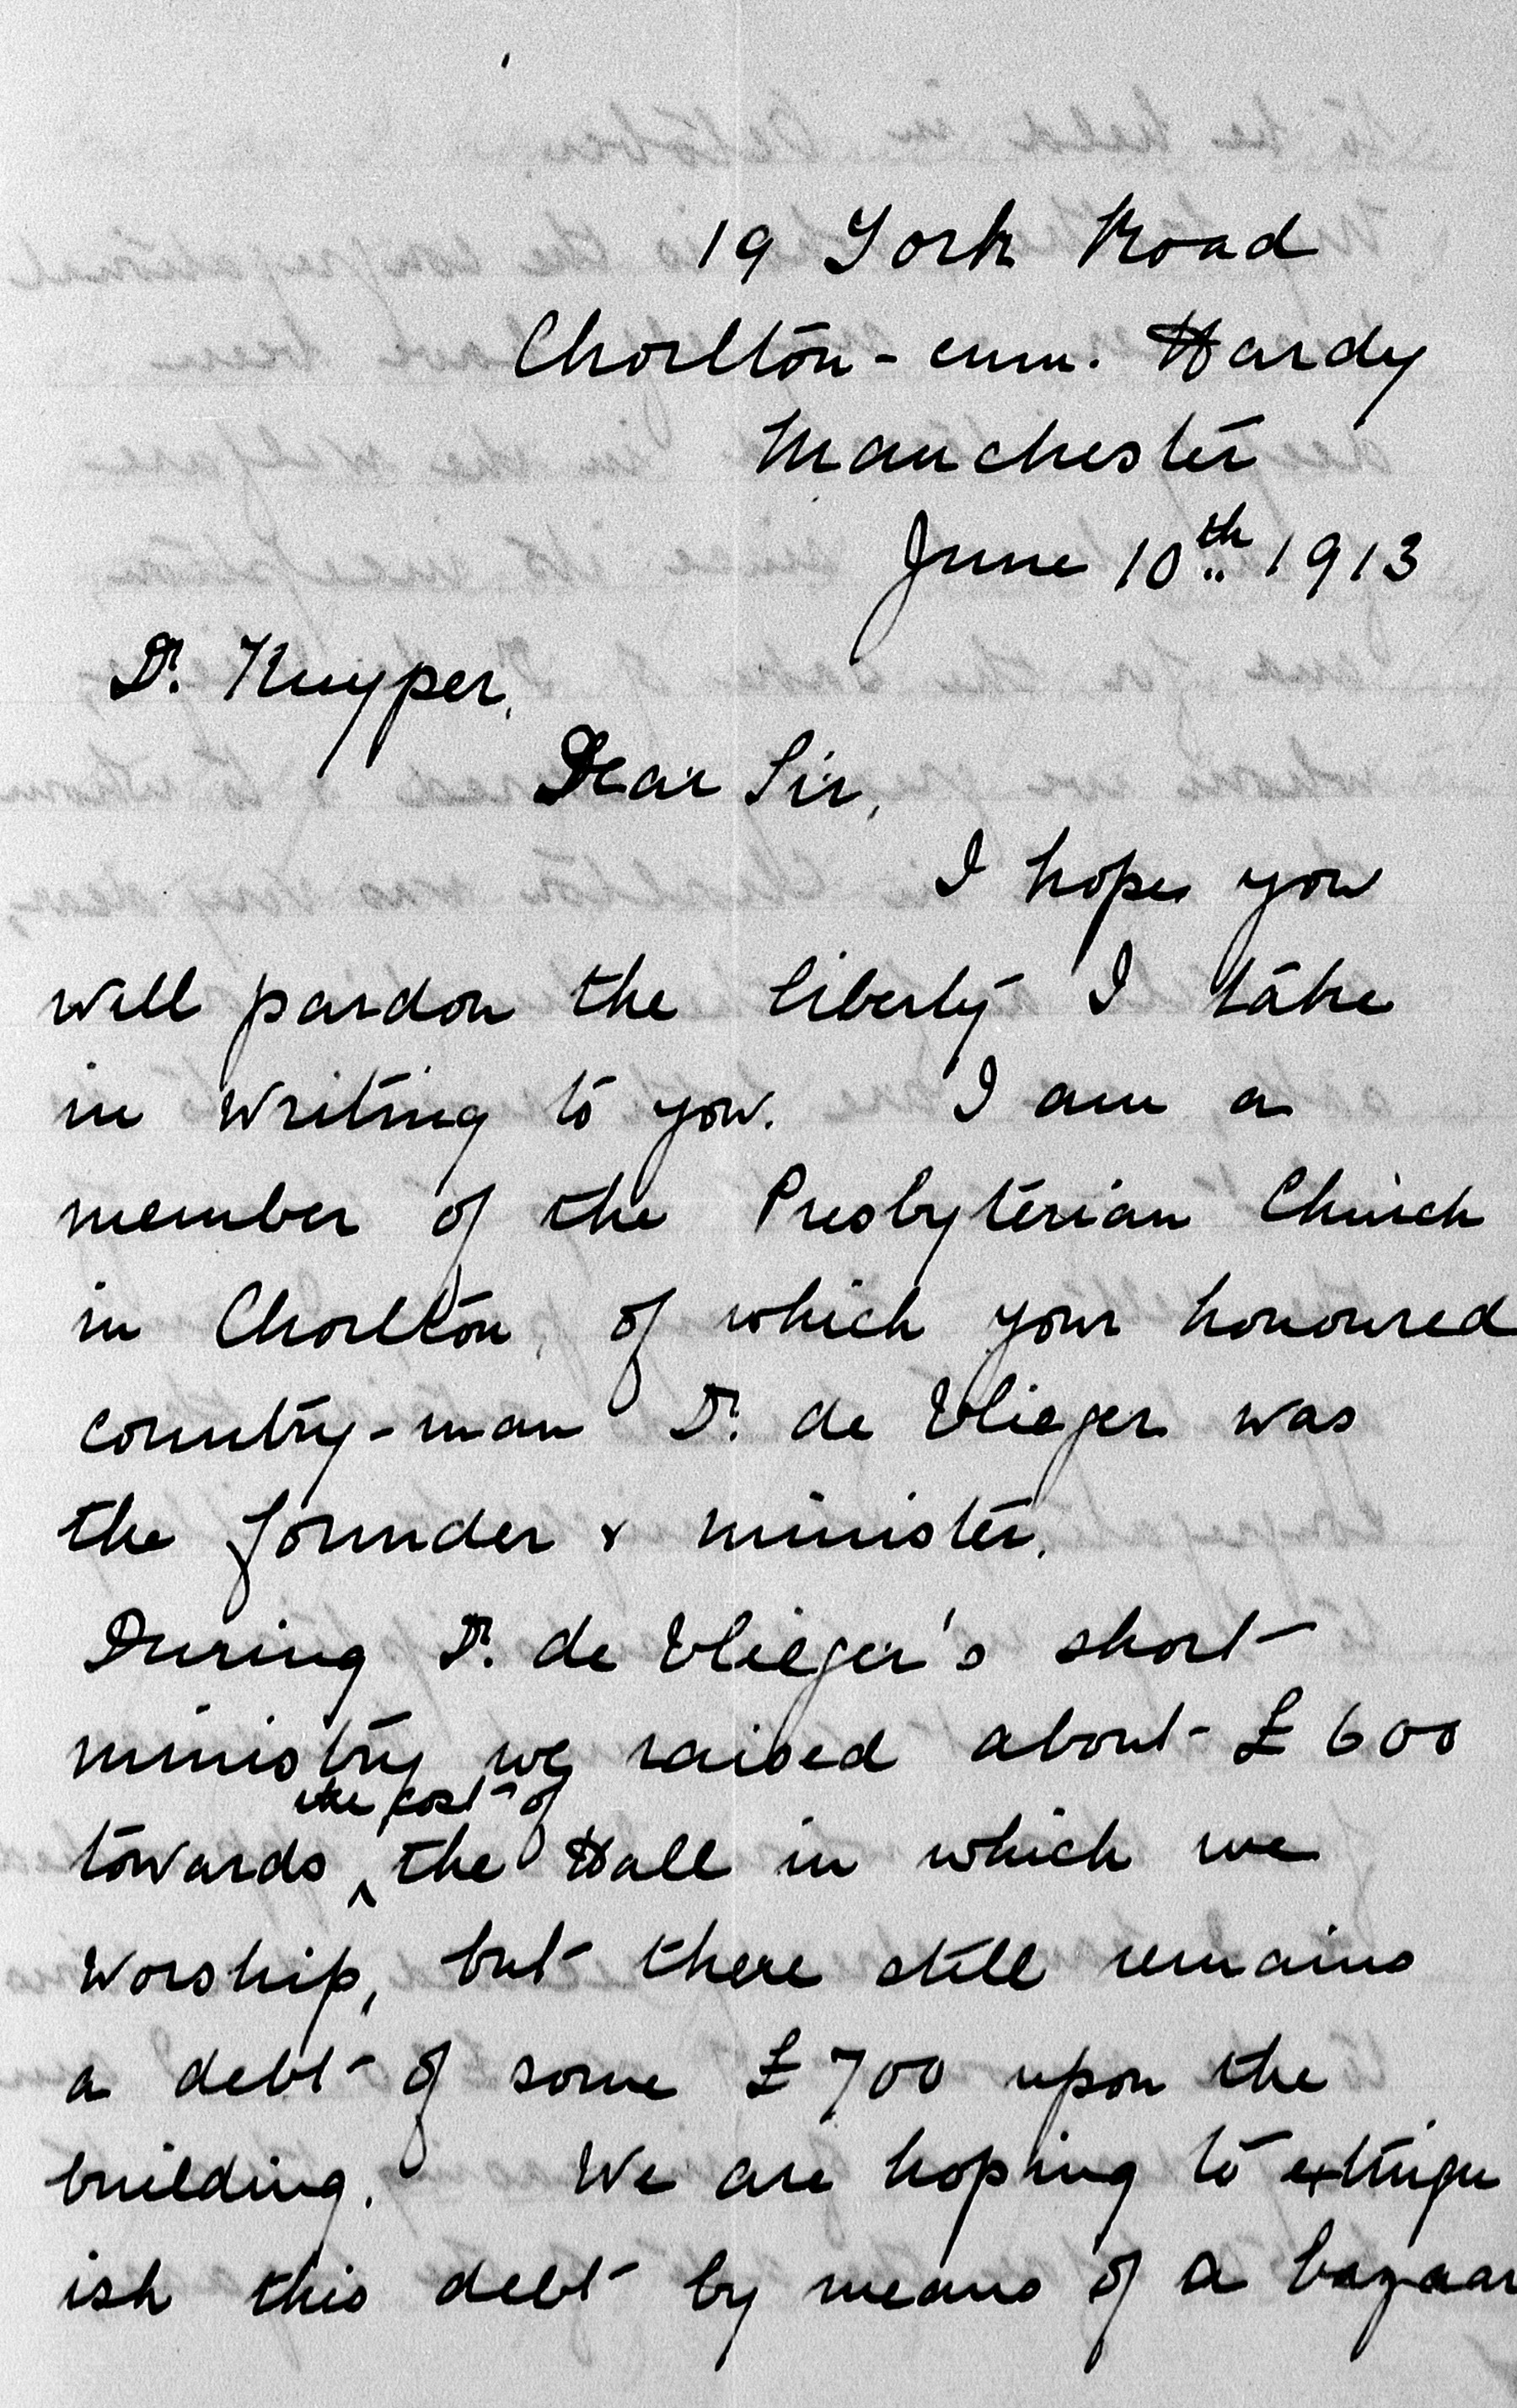 19 York Road
Chorlton-cum. Hardy
Manchester
June 10th 1913
Dr. Kuyper,
Dear Sir,
I hope you
will pardon the liberty I take
in writing to you. I am a
member of the Presbyterian Church
in Chorlton, of which your honoured
country-man Dr. de Vlieger was
the founder & minister.
During Dr. de Vlieger's short
ministry we raised about £600
the cost of
towards ^ the Hall in which we
worship, but there still remains
a debt of some £700 upon the
building. We are hoping to extingu
ish this debt by means of a bazaar